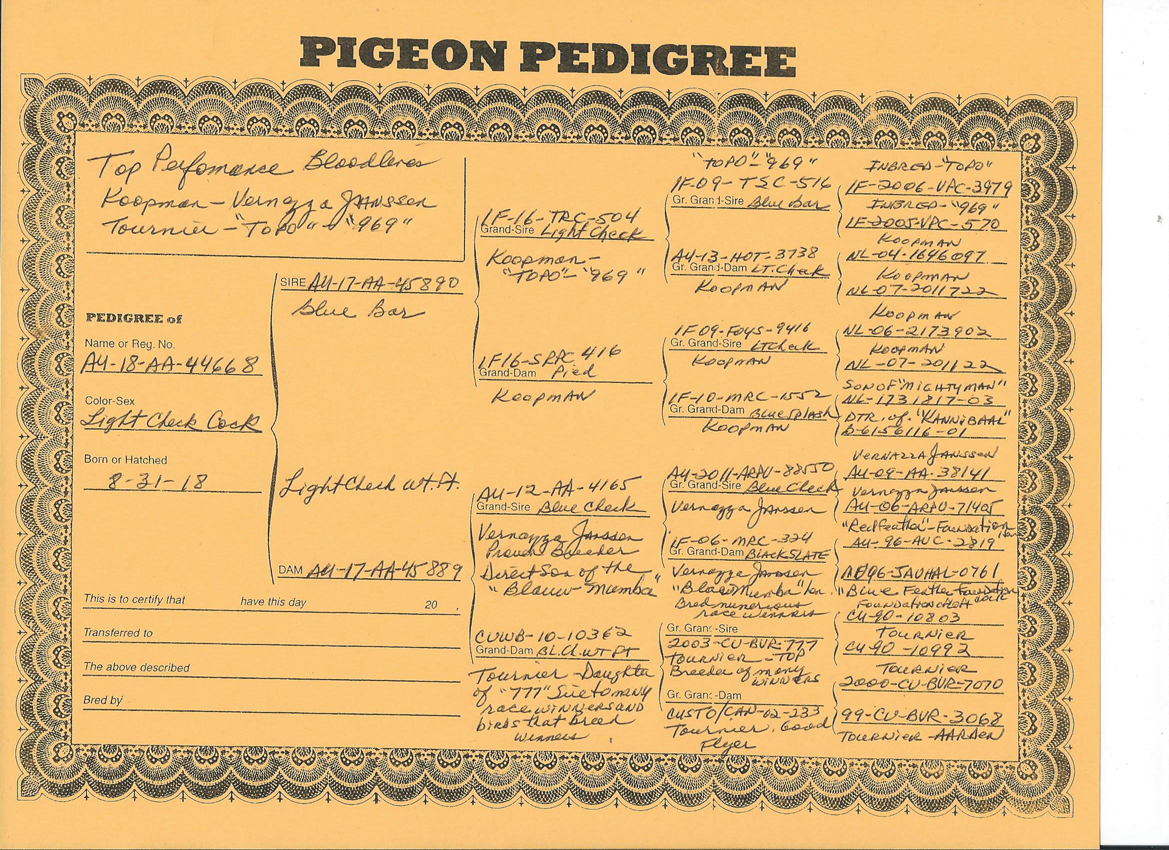 PIGEON PEDIGREE
Top Perfomance Bloodlines
Koopman - Vernazza JANSSEN
Tournier - "TOPO" - "969"
PEDIGREE of
Name or Reg. No.
AU-18-AA-44668
Color-Sex
Light Check Cock
Born or Hatched
8-31-18
This is to certify that have this day 20 .
Transferred to
The above described
Bred by
SIRE AU-17-AA-45890
Blue Bar
Light Check wt. Ft.
DAM AU-17-AA-45889
IF-16-TRC-504
Grand-Sire Light Check
Koopman-
"TOPO"-"969"
IF16-SRPC 416
Grand-Dam Pied
KOOPMAN
AU-12-AA-4165
Grand-Sire Blue Check
Vernazza Janssen
Proven Breeder
Direct Son of the
"Blauw Mumba"
CUWB-10-10362
Grand-Dam BL.Cl. WT FT
Tournier-Daughter
of "777" Sire to many
race winners and
birds that breed
winners
"TOPO"-"969"
IF-09-TSC-516
Gr. Grand-Sire Blue Bar
AU-13-HOT-3738
Gr. Grand-Dam LT. Check
KOOPMAN
IF 09-FOYS-9416
Gr. Grand-Sire LT Check
KOOPMAN
IF-10-MRC-1552
Gr. Grand-Dam BLUE SPLASH
KOOPMAN
AU-2011-ARPU-88550
Gr. Grand-Sire Blue Check
Vernazza Janssen
IF-06-MRC-324
Gr. Grand-Dam BLACK SLATE
Vernazza Janssen
"Blauw Mumba" hen
Bred numerious
race winners
Gr. Grand-Sire
2003-CU-BUR-777
TOURNIER - TOP
Breeder of many
WINNERS
Gr. Grand-Dam
CUSTO/CAN-02-233
Tournier. Good
Flyer
INBRED-"TOPO"
IF-2006-VPC-3979
INBRED-"969"
IF-2005-VPC-570
KOOPMAN
NL-04-1646097
KOOPMAN
NL-07-2011722
KOOPMAN
NL-06-2173902
KOOPMAN
NL-07-201122
SON OF "MIGHTY MAN"
NL-1731817-03
DTR. of "KANNIBAAL"
D-6156116-01
VERNAZZA JANSSEN
AU-09-AA-38141
Vernazza Janssen
AU-06-ARPU-71405
"Red Feather"-Foundation
AU-96-AUC-2819
AE96-JAUHAL-0761
"Blue Feather Foundation
CU-90-10803
TOURNIER
CU-90-10992
TOURNIER
2000-CU-BUR-7070
99-CU-BUR-3068
TOURNIER-AARDEN